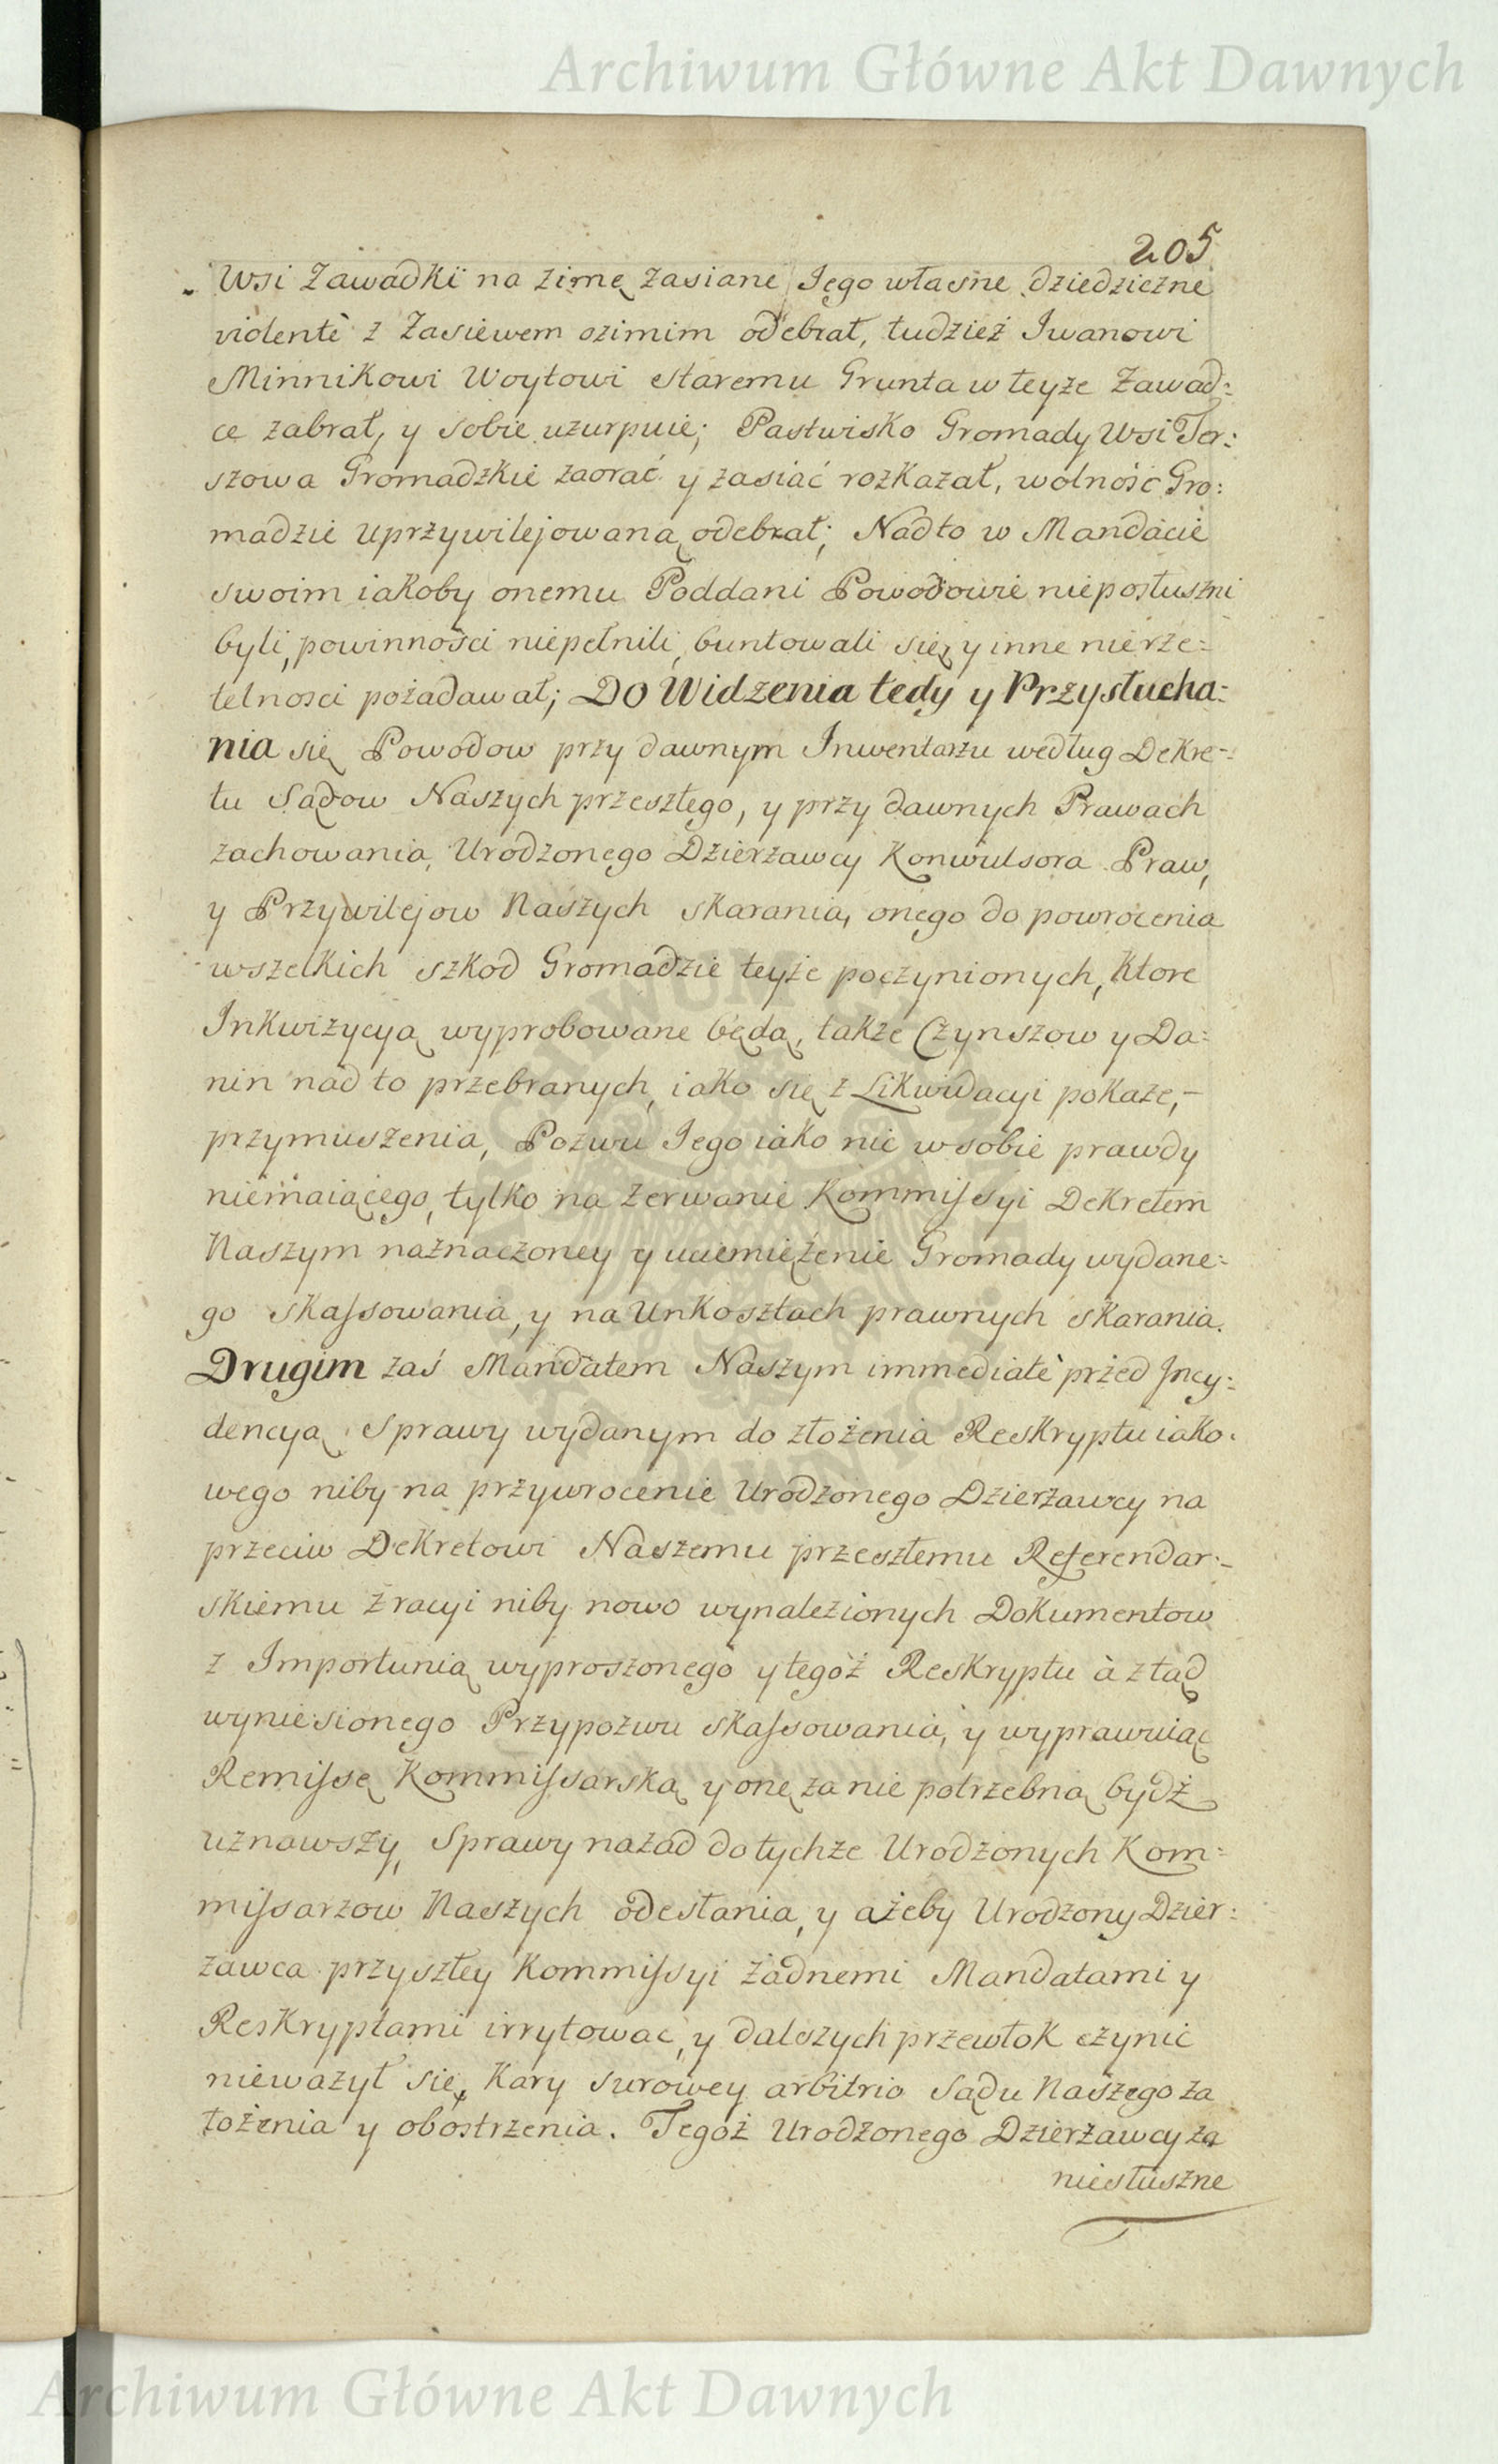 Archiwum Główne Akt Dawnych
205
Wsi Zawadki na zimę zasiane Jego własne dziedziczne
violentè z Zasiewem ozimim odebrał, tudzież Iwanowi
Minnikowi Woytowi staremu Grunta w teyże Zawad:
ce zabrał, y sobie uzurpuie; Pastwisko Gromady Wsi Ter:
szowa Gromadzkie zaorać y zasiać rozkazał, wolność Gro:
madzie uprzywilejowaną odebrał; Nadto w Mandacie
swoim iakoby onemu Poddani Powodowie nieposłuszni
byli, powinności niepełnili, buntowali się, y inne nierze:
telnosci pożadawał; Do Widzenia tedy y Przysłucha:
nia się Powodow przy dawnym Inwentarzu według Dekre:
tu Sądow Naszych przeszłego, y przy dawnych Prawach
zachowania, Urodzonego Dzierżawcy Konwulsora Praw,
y Przywilejow Naszych skarania, onego do powrocenia
wszelkich szkod Gromadzie teyże poczynionych, ktore
Inkwizycyą wyprobowane będą, także Czynszow y Da:
nin nad to przebranych, iako się z Likwidacyi pokaże,
przymuszenia, Pozwu Jego iako nic w sobie prawdy
niemaiącego, tylko na zerwanie Kommissyi Dekretem
Naszym naznaczoney y uciemiężenie Gromady wydane:
go skassowania, y na Unkosztach prawnych skarania.
Drugim zaś Mandatem Naszym immediatè przed Incy:
dencyą Sprawy wydanym do złożenia Reskryptu iako:
wego niby na przywrocenie Urodzonego Dzierżawcy na
przeciw Dekretowi Naszemu przeszłemu Referendar:
skiemu z racyi niby nowo wynalezionych Dokumentow
z Importunią wyproszonego y tegoż Reskryptu à ztąd
wyniesionego Przypozwu skassowania, y wyprawuiąc
Remissę Kommissarską y onę za nie potrzebną bydź
uznawszy, Sprawy nazad do tychże Urodzonych Kom:
missarzow Naszych odesłania, y ażeby Urodzony Dzier:
żawca przyszłey Kommissyi żadnemi Mandatami y
Reskryptami irrytowac, y dalszych przewłok czynic
nieważył się, Kary surowey arbitrio Sądu Naszego za
łożenia y obostrzenia. Tegoż Urodzonego Dzierżawcy za
niesłuszne
Archiwum Główne Akt Dawnych